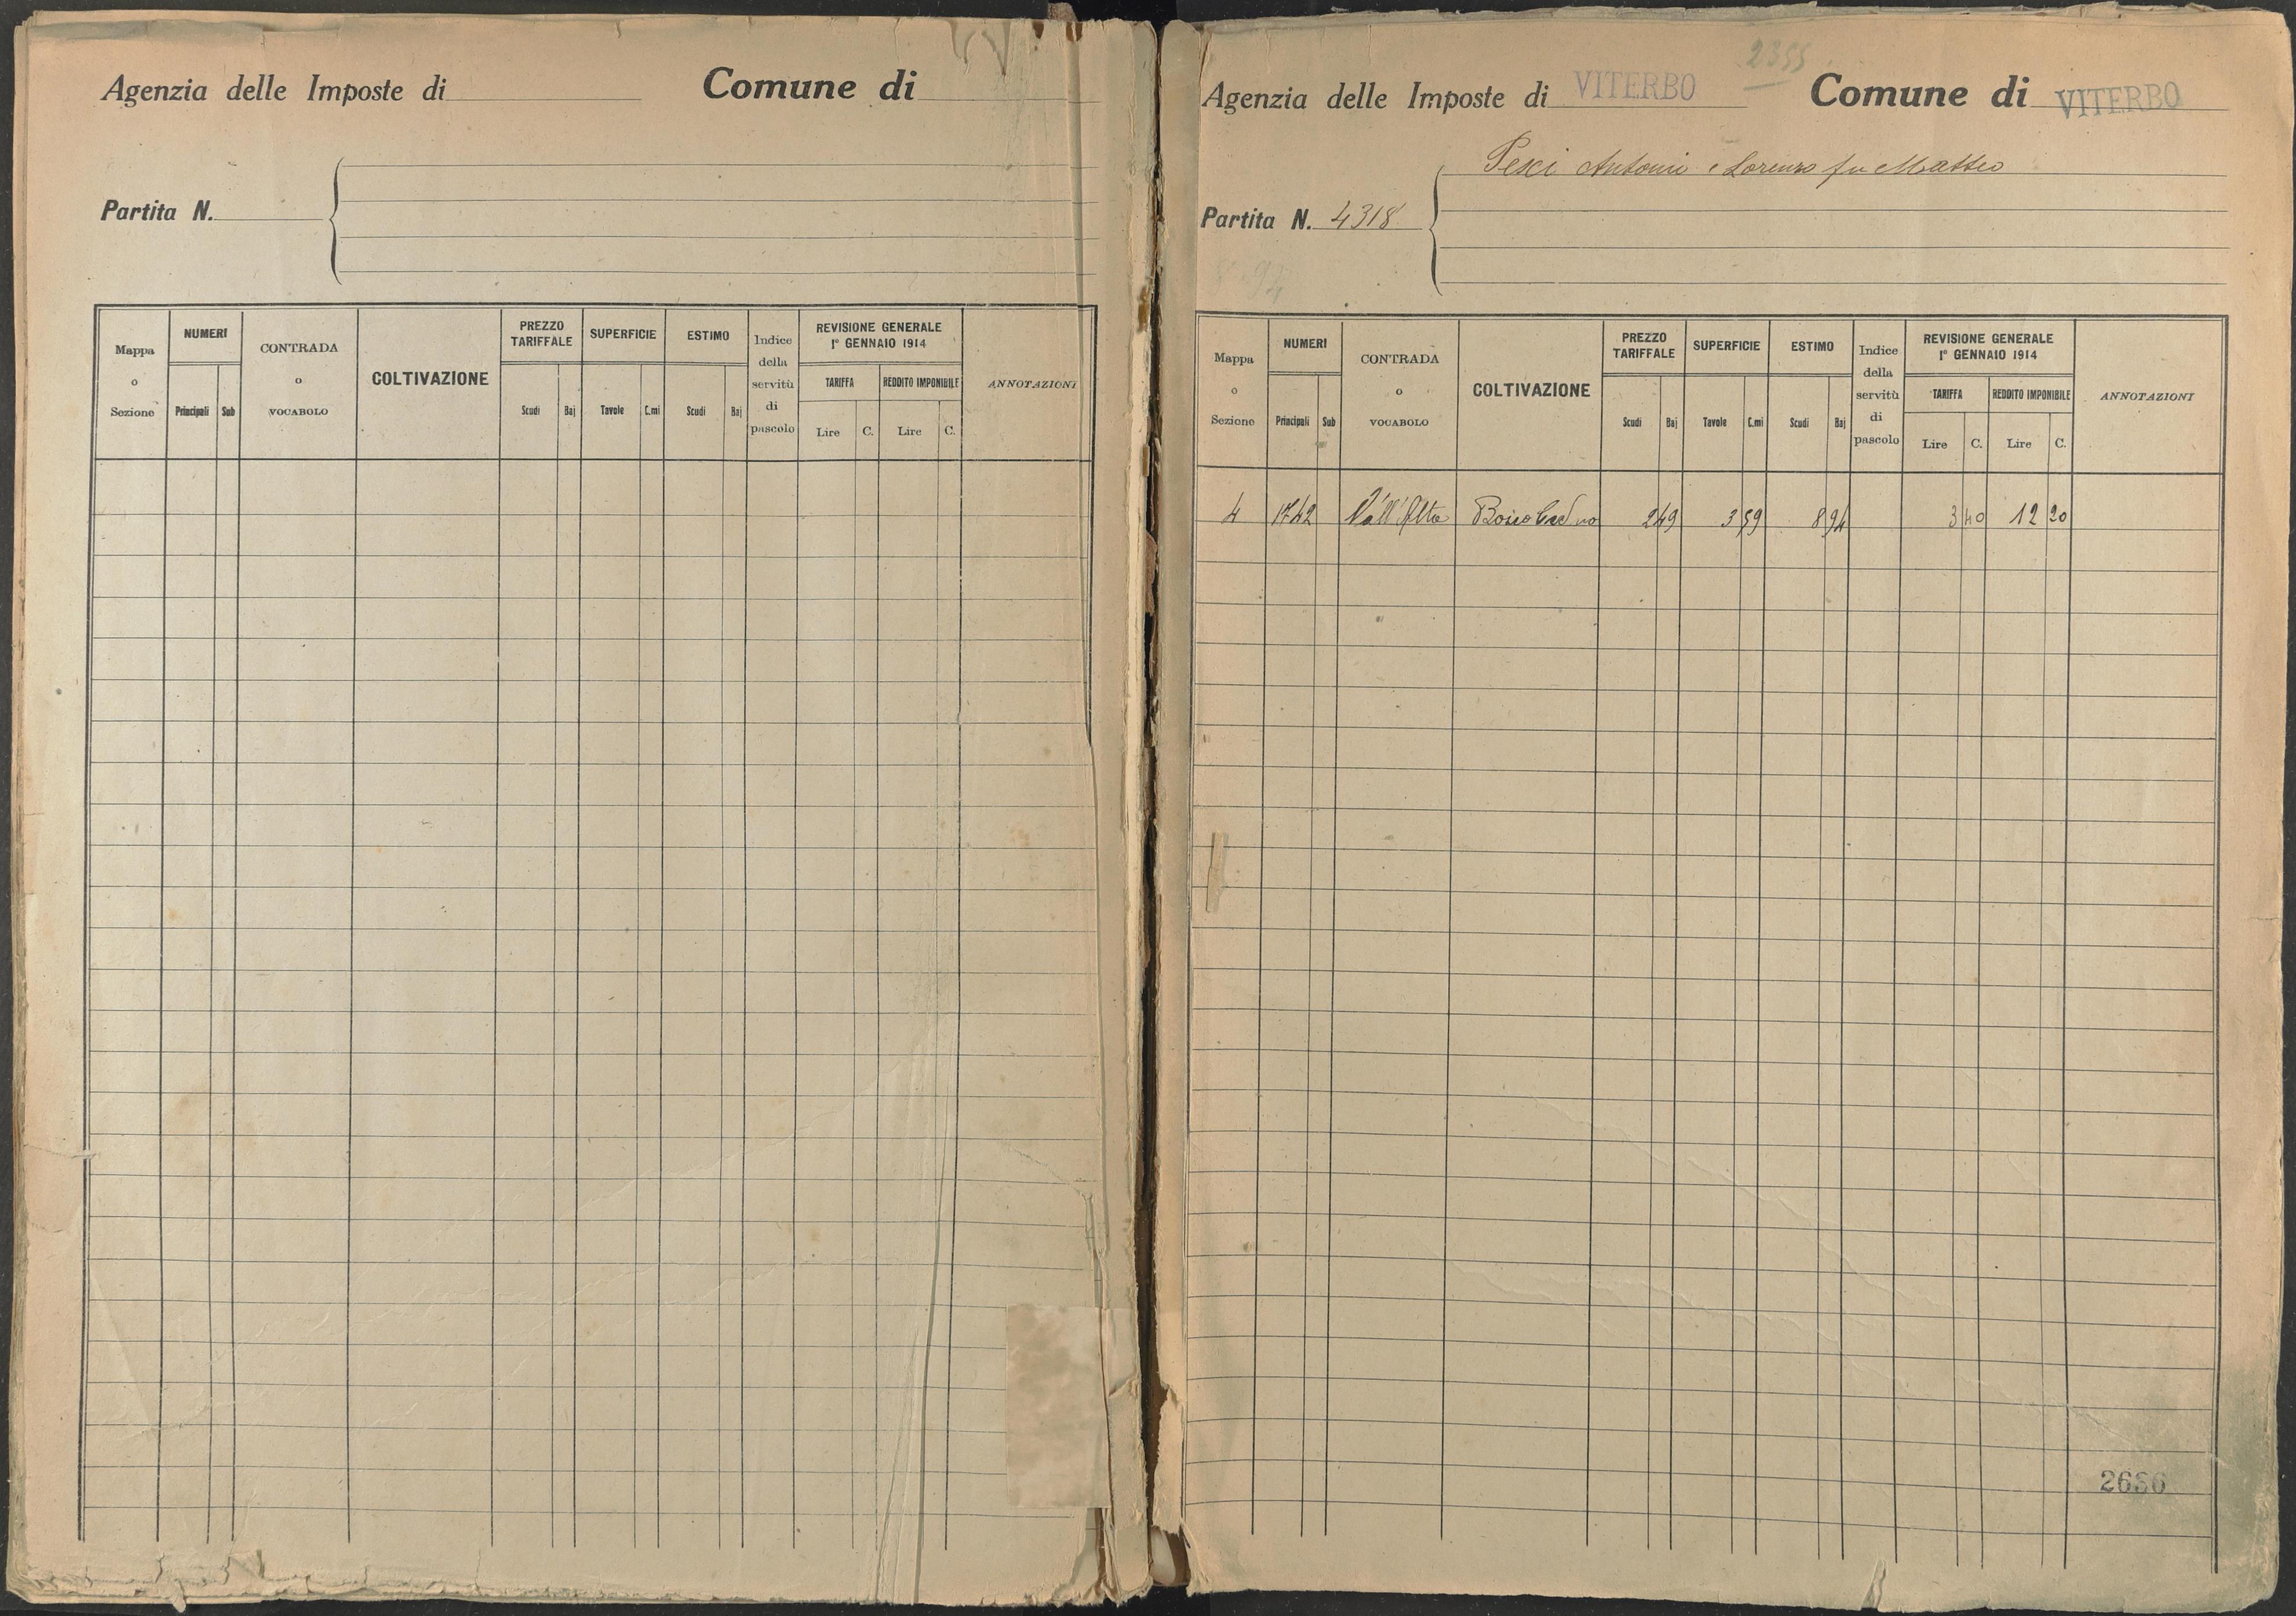 Agenzia delle Imposte di Comune di
Partita N.
Mappa o Sezione NUMERI Principali Sub CONTRADA o VOCABOLO COLTIVAZIONE PREZZO TARIFFALE Scudi Baj SUPERFICIE Tavole C.mi ESTIMO Scudi Baj Indice della servitù di pascolo REVISIONE GENERALE 1° GENNAIO 1914 TARIFFA Lire C. REDDITO IMPONIBILE Lire C. ANNOTAZIONI
2355
Agenzia delle Imposte di VITERBO Comune di VITERBO
Pesci Antonio e Lorenzo fu Matteo
Partita N. 4318
Mappa o Sezione NUMERI Principali Sub CONTRADA o VOCABOLO COLTIVAZIONE PREZZO TARIFFALE Scudi Baj SUPERFICIE Tavole C.mi ESTIMO Scudi Baj Indice della servitù di pascolo REVISIONE GENERALE 1° GENNAIO 1914 TARIFFA Lire C. REDDITO IMPONIBILE Lire C. ANNOTAZIONI
4 1742 Vall'Alta Bosco Ceduo 2 49 3 59 8 94 3 40 12 20